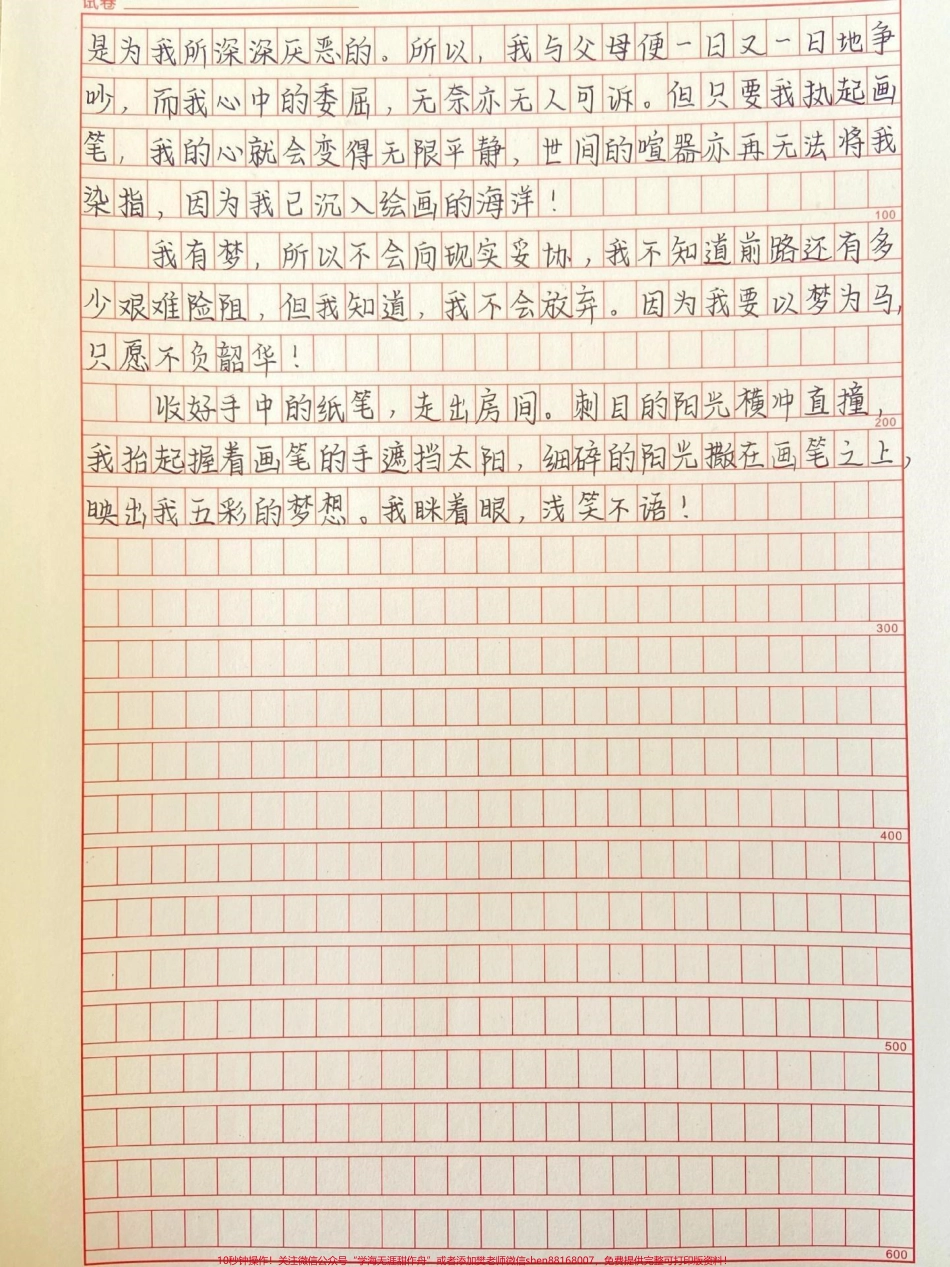 试卷
是为我所深深厌恶的。所以，我与父母便一日又一日地争
吵，而我心中的委屈，无奈亦无人可诉。但只要我执起画
笔，我的心就会变得无限平静，世间的喧器亦再无法将我
染指，因为我已沉入绘画的海洋！
100
我有梦，所以不会向现实妥协，我不知道前路还有多
少艰难险阻，但我知道，我不会放弃。因为我要以梦为马，
只愿不负韶华！
收好手中的纸笔，走出房间。刺目的阳光横冲直撞，
200
我抬起握着画笔的手遮挡太阳，细碎的阳光撒在画笔之上，
映出我五彩的梦想。我眯着眼，浅笑不语！
300
400
500
600
10秒钟操作！关注微信公众号“学海无涯甜作舟”或者添加樊老师微信shen88168007，免费提供完整可打印版资料！